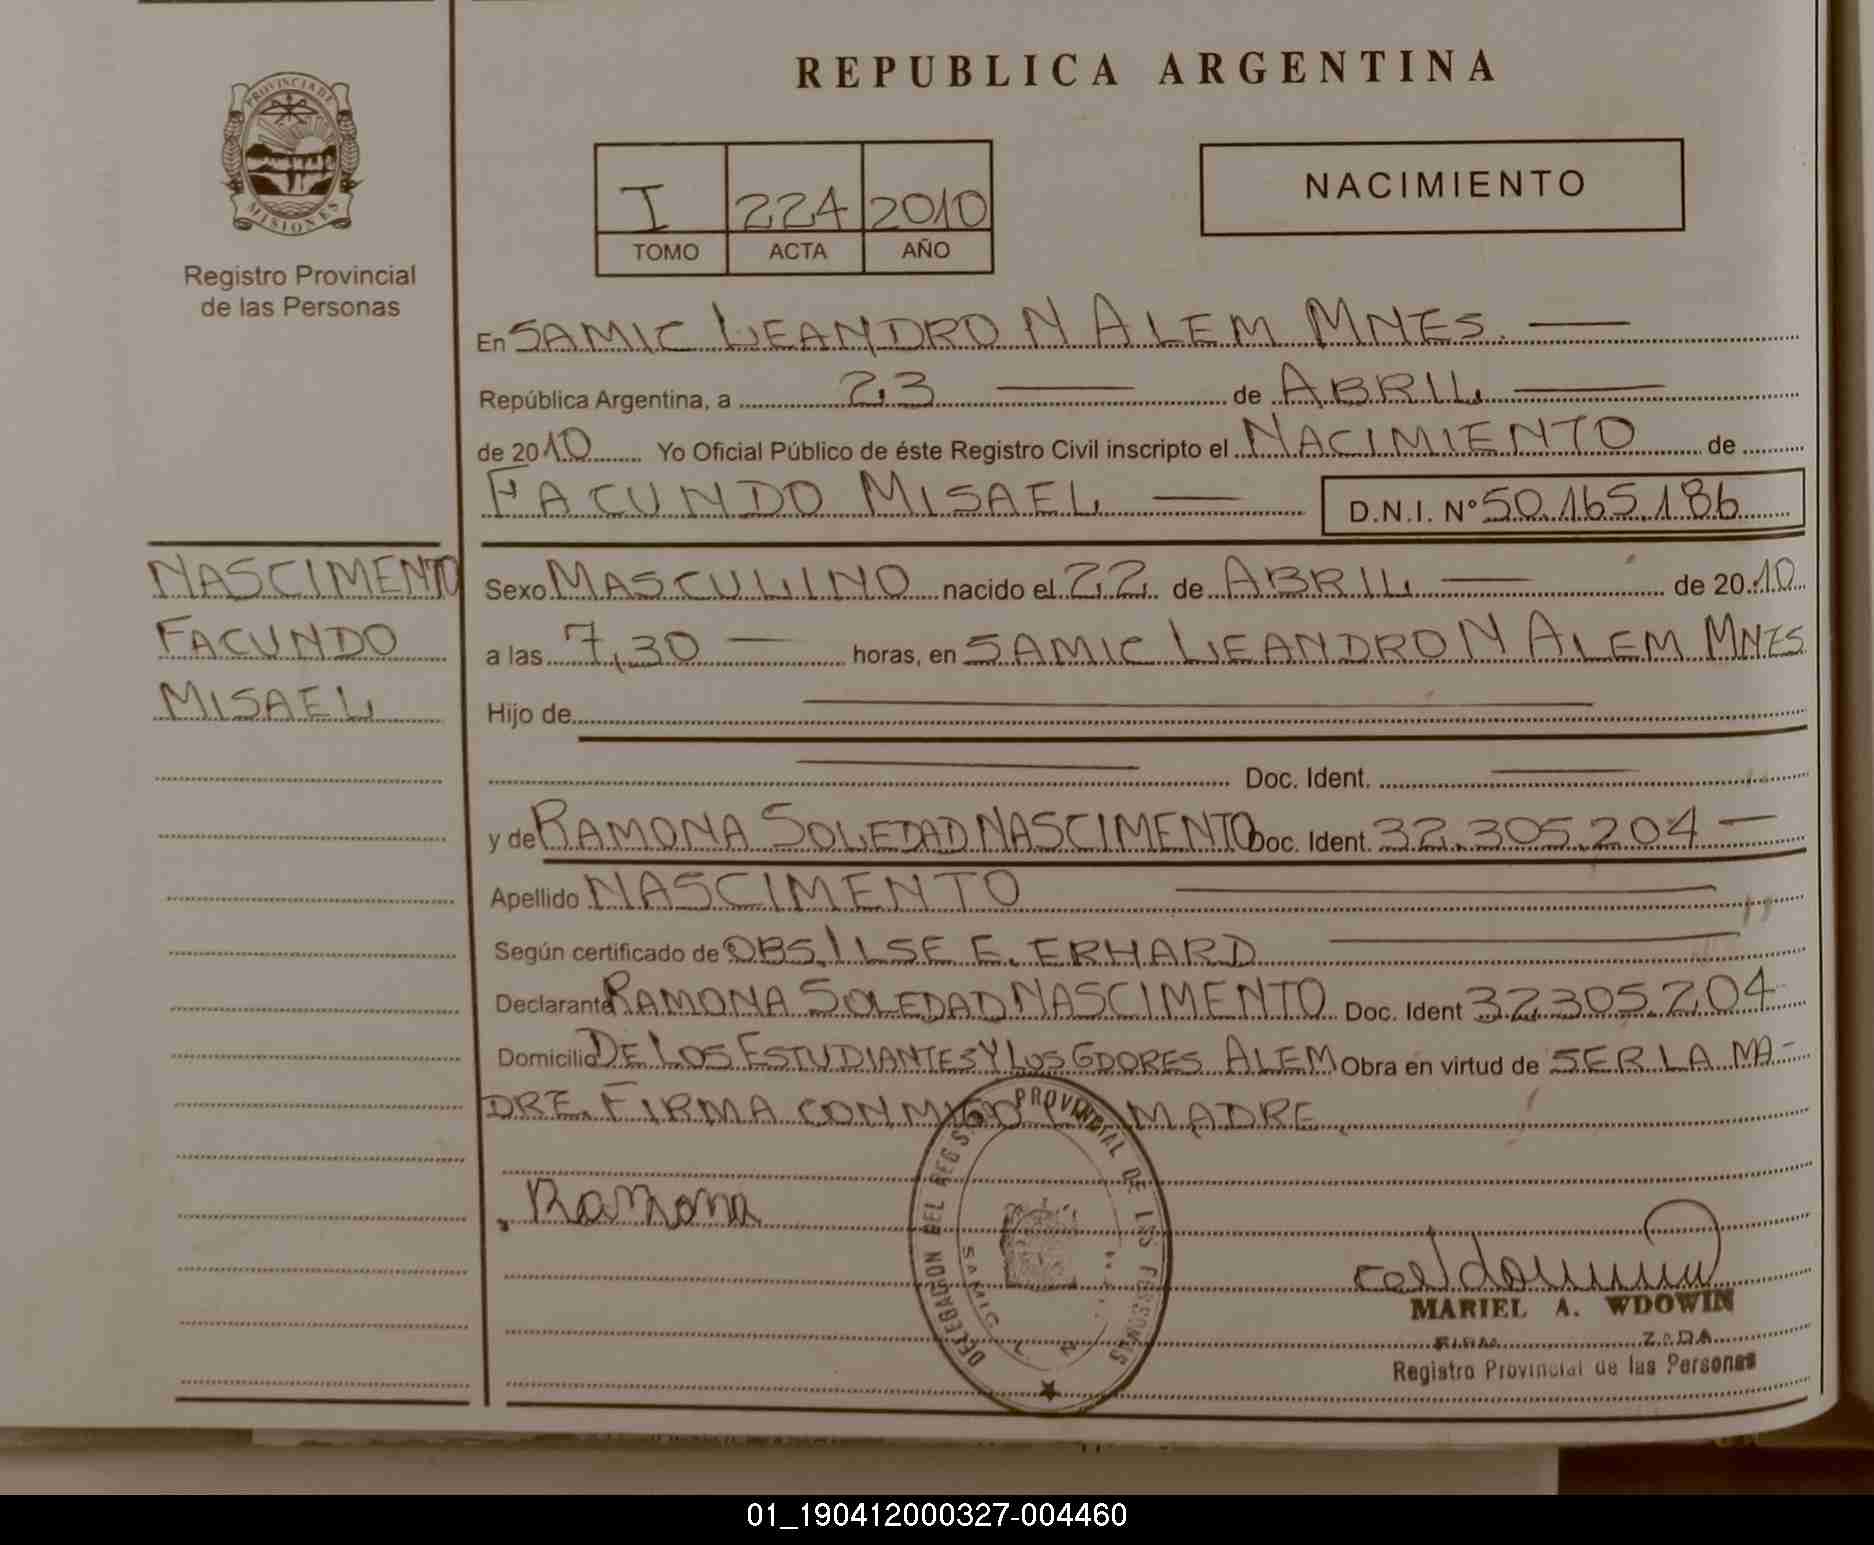 REPUBLICA ARGENTINA
PROVINCIA DE
MISIONES
Registro Provincial
de las Personas
I 224 2010
TOMO ACTA AÑO
NACIMIENTO
En SAMIC LEANDRO N ALEM MNES.
República Argentina, a 23 de ABRIL
de 2010 Yo Oficial Público de éste Registro Civil inscripto el NACIMIENTO de
FACUNDO MISAEL D.N.I. Nº 50.165.186
NASCIMENTO
FACUNDO
MISAEL
Sexo MASCULINO nacido el 22 de ABRIL de 2010
a las 7,30 horas, en SAMIC LEANDRO N ALEM MNES
Hijo de
Doc. Ident.
y de RAMONA SOLEDAD NASCIMENTO Doc. Ident. 32.305.204
Apellido NASCIMENTO
Según certificado de OBS. ILSE E. ERHARD
Declarante RAMONA SOLEDAD NASCIMENTO Doc. Ident 32.305.204
Domicilio DE LOS ESTUDIANTES Y LOS GDORES ALEM Obra en virtud de SER LA MA-
DRE. FIRMA CONMIGO MADRE.
Ramona
DELEGACION DEL REG. PROVINCIAL DE LAS PERSONAS
SAMIC L. N.
MARIEL A. WDOWIN
Registro Provincial de las Personas
01_190412000327-004460